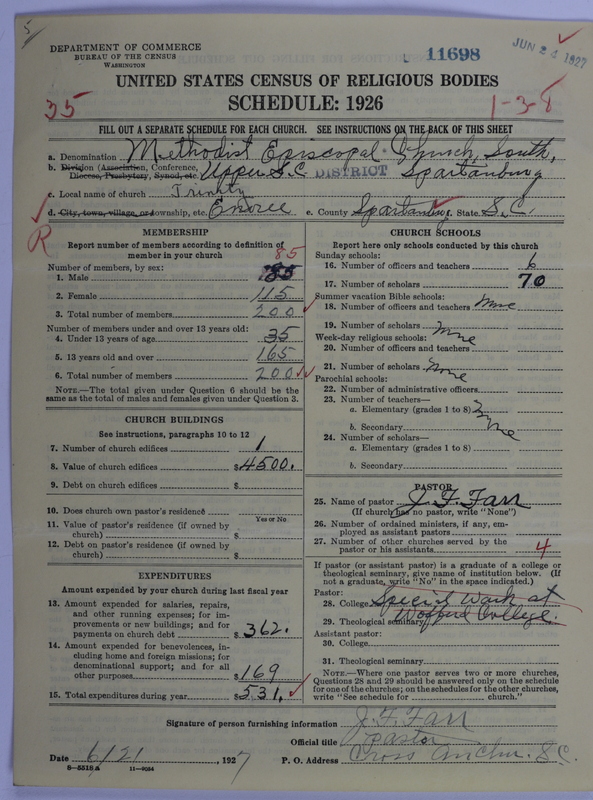 5
DEPARTMENT OF COMMERCE
BUREAU OF THE CENSUS
WASHINGTON
11698
JUN 24 1927
UNITED STATES CENSUS OF RELIGIOUS BODIES
SCHEDULE: 1926
35
1-3-8
FILL OUT A SEPARATE SCHEDULE FOR EACH CHURCH. SEE INSTRUCTIONS ON THE BACK OF THIS SHEET
a. Denomination Methodist Episcopal Church, South,
b. Division (Association, Conference, Diocese, Presbytery, Synod, etc. Upper S.C. DISTRICT Spartanburg
c. Local name of church Trinity
d. City, town, village, or township, etc. Enoree e. County Spartanburg State S.C.
R
MEMBERSHIP
Report number of members according to definition of
member in your church
85
Number of members, by sex:
1. Male 85
2. Female 115
3. Total number of members 200
Number of members under and over 13 years old:
4. Under 13 years of age 35
5. 13 years old and over 165
6. Total number of members 200
NOTE.—The total given under Question 6 should be the
same as total of males and females given under Question 3.
CHURCH BUILDINGS
See instructions, paragraphs 10 to 12
7. Number of church edifices 1
8. Value of church edifices $4500.
9. Debt on church edifices $
10. Does church own pastor's residence
Yes or No
11. Value of pastor's residence (if owned by
church) $
12. Debt on pastor's residence (if owned by
church) $
EXPENDITURES
Amount expended by your church during last fiscal year
13. Amount expended for salaries, repairs,
and other running expenses; for im-
provements or new buildings; and for
payments on church debt $362.
14. Amount expended for benevolences, in-
cluding home and foreign missions; for
denominational support; and for all
other purposes $169
15. Total expenditures during year $531.
CHURCH SCHOOLS
Report here only schools conducted by this church
Sunday schools:
16. Number of officers and teachers 6
17. Number of scholars 70
Summer vacation Bible schools:
18. Number of officers and teachers none
19. Number of scholars none
Week-day religious schools:
20. Number of officers and teachers
21. Number of scholars none
Parochial schools:
22. Number of administrative officers
23. Number of teachers—
a. Elementary (grades 1 to 8)
b. Secondary none
24. Number of scholars—
a. Elementary (grades 1 to 8)
b. Secondary
PASTOR
25. Name of pastor J. F. Farr
(If church has no pastor, write "None")
26. Number of ordained ministers, if any, em-
ployed as assistant pastors
27. Number of other churches served by the
pastor or his assistants 4
If pastor (or assistant pastor) is a graduate of a college or
theological seminary, give name of institution below. (If
not a graduate, write "No" in the space indicated.)
Pastor:
28. College Special Work at
29. Theological seminary Wofford College.
Assistant pastor:
30. College
31. Theological seminary
NOTE.—Where one pastor serves two or more churches,
Questions 28 and 29 should be answered only on the schedule
for one of the churches; on the schedules for the other churches,
write "See schedule for church."
Signature of person furnishing information J. F. Farr
Official title Pastor
Date 6/21, 1927 P. O. Address Cross Anchor S.C.
8-5518a 11-9024